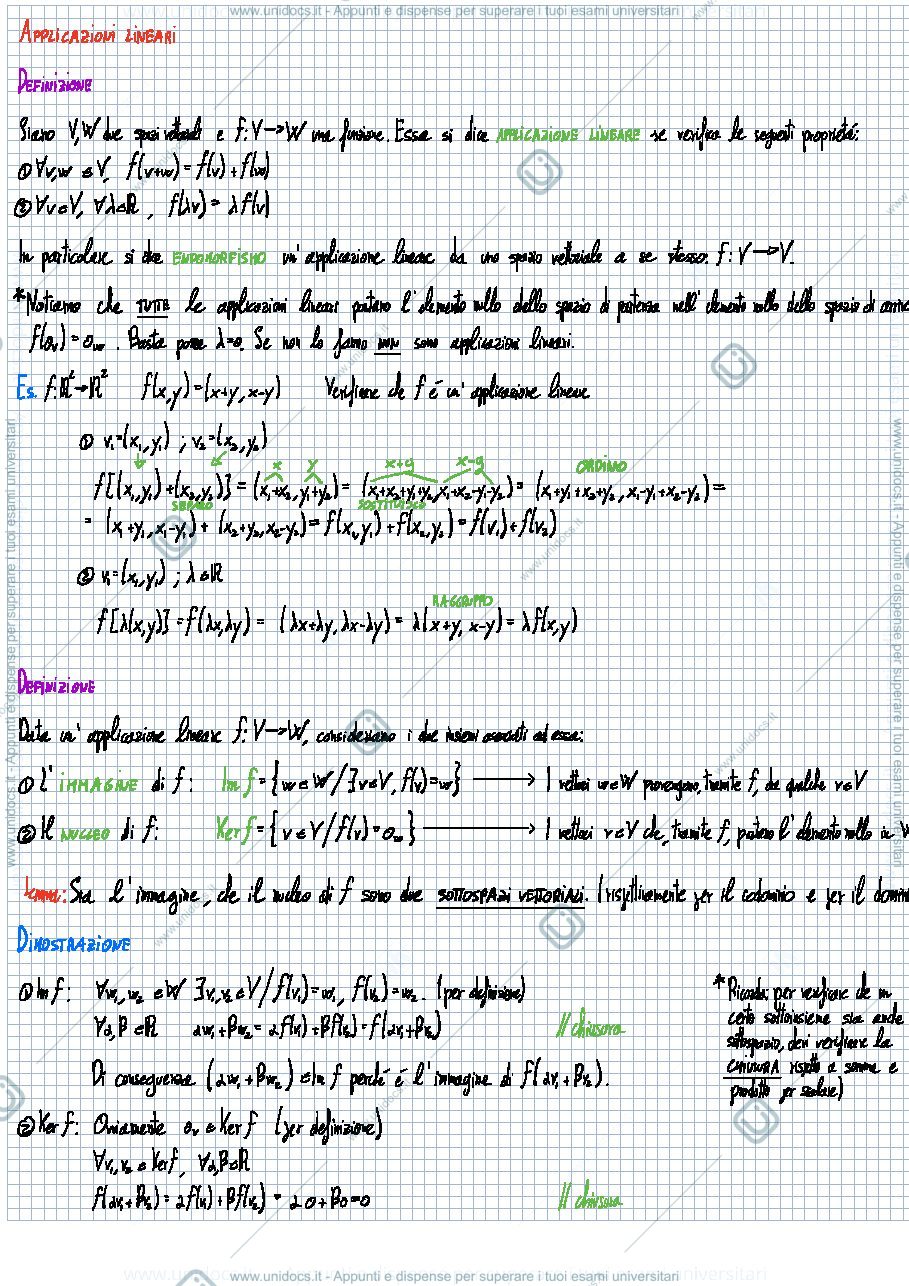 www.unidocs.it - Appunti e dispense per superare i tuoi esami universitari
APPLICAZIONI LINEARI
DEFINIZIONE
Siano V,W due spazi vettoriali e f: V→W una funzione. Essa si dice APPLICAZIONE LINEARE se verifica le seguenti proprietà:
① ∀v,w ∈ V, f(v+w) = f(v) + f(w)
② ∀v ∈ V, ∀λ∈ℝ, f(λv) = λ f(v)
In particolare si dice ENDOMORFISMO un' applicazione lineare da uno spazio vettoriale a se stesso: f: V→V.
*Notiamo che TUTTE le applicazioni lineari portano l'elemento nullo dello spazio di partenza nell' elemento nullo dello spazio di
f(0v) = 0w. Basta porre λ=0. Se non lo fanno NON sono applicazioni lineari.
Es. f: ℝ²→ℝ² f(x,y) = (x+y, x-y) Verificare che f é un' applicazione lineare
① v₁=(x₁,y₁) ; v₂=(x₂,y₂)
x y x+y x-y ORDINO
f[(x₁,y₁)+(x₂,y₂)] = (x₁+x₂, y₁+y₂) = (x₁+x₂+y₁+y₂, x₁+x₂-y₁-y₂) = (x₁+y₁+x₂+y₂, x₁-y₁+x₂-y₂) =
SEPARO SOSTITUISCO
= (x₁+y₁, x₁-y₁) + (x₂+y₂, x₂-y₂) = f(x₁,y₁) + f(x₂,y₂) = f(v₁) + f(v₂)
② v₁=(x₁,y₁) ; λ∈ℝ
RAGGRUPPO
f[λ(x,y)] = f(λx,λy) = (λx+λy, λx-λy) = λ(x+y, x-y) = λ f(x,y)
DEFINIZIONE
Data un' applicazione lineare f: V→W, consideriamo i due insiemi associati ad essa:
① L' IMMAGINE di f: Im f = {w∈W / ∃v∈V, f(v)=w} → I vettori w∈W provengono, tramite f, da qualche v∈V
② Il NUCLEO di f: Ker f = {v∈V / f(v) = 0w} → I vettori v∈V che, tramite f, portano l'elemento nullo in W
Lemma: Sia l' immagine, che il nucleo di f sono due SOTTOSPAZI VETTORIALI. (rispettivamente per il codominio e per il
DIMOSTRAZIONE
① Im f: ∀w₁,w₂ ∈W ∃v₁,v₂∈V / f(v₁)=w₁, f(v₂)=w₂. (per definizione)
∀α,β ∈ℝ αw₁+βw₂ = αf(v₁)+βf(v₂) = f(αv₁+βv₂) // chiusura
Di conseguenza (αw₁+βw₂) ∈Im f perché é l' immagine di f(αv₁+βv₂).
* Ricorda: per verificare che un
certo sottoinsieme sia anche
sottospazio, devi verificare la
CHIUSURA rispetto a somma e
prodotto per scalare)
② Ker f: Ovviamente 0v ∈ Ker f (per definizione)
∀v₁,v₂ ∈ Ker f, ∀α,β∈ℝ
f(αv₁+βv₂) = αf(v₁)+βf(v₂) = α0+β0=0 // chiusura
www.unidocs.it - Appunti e dispense per superare i tuoi esami universitari